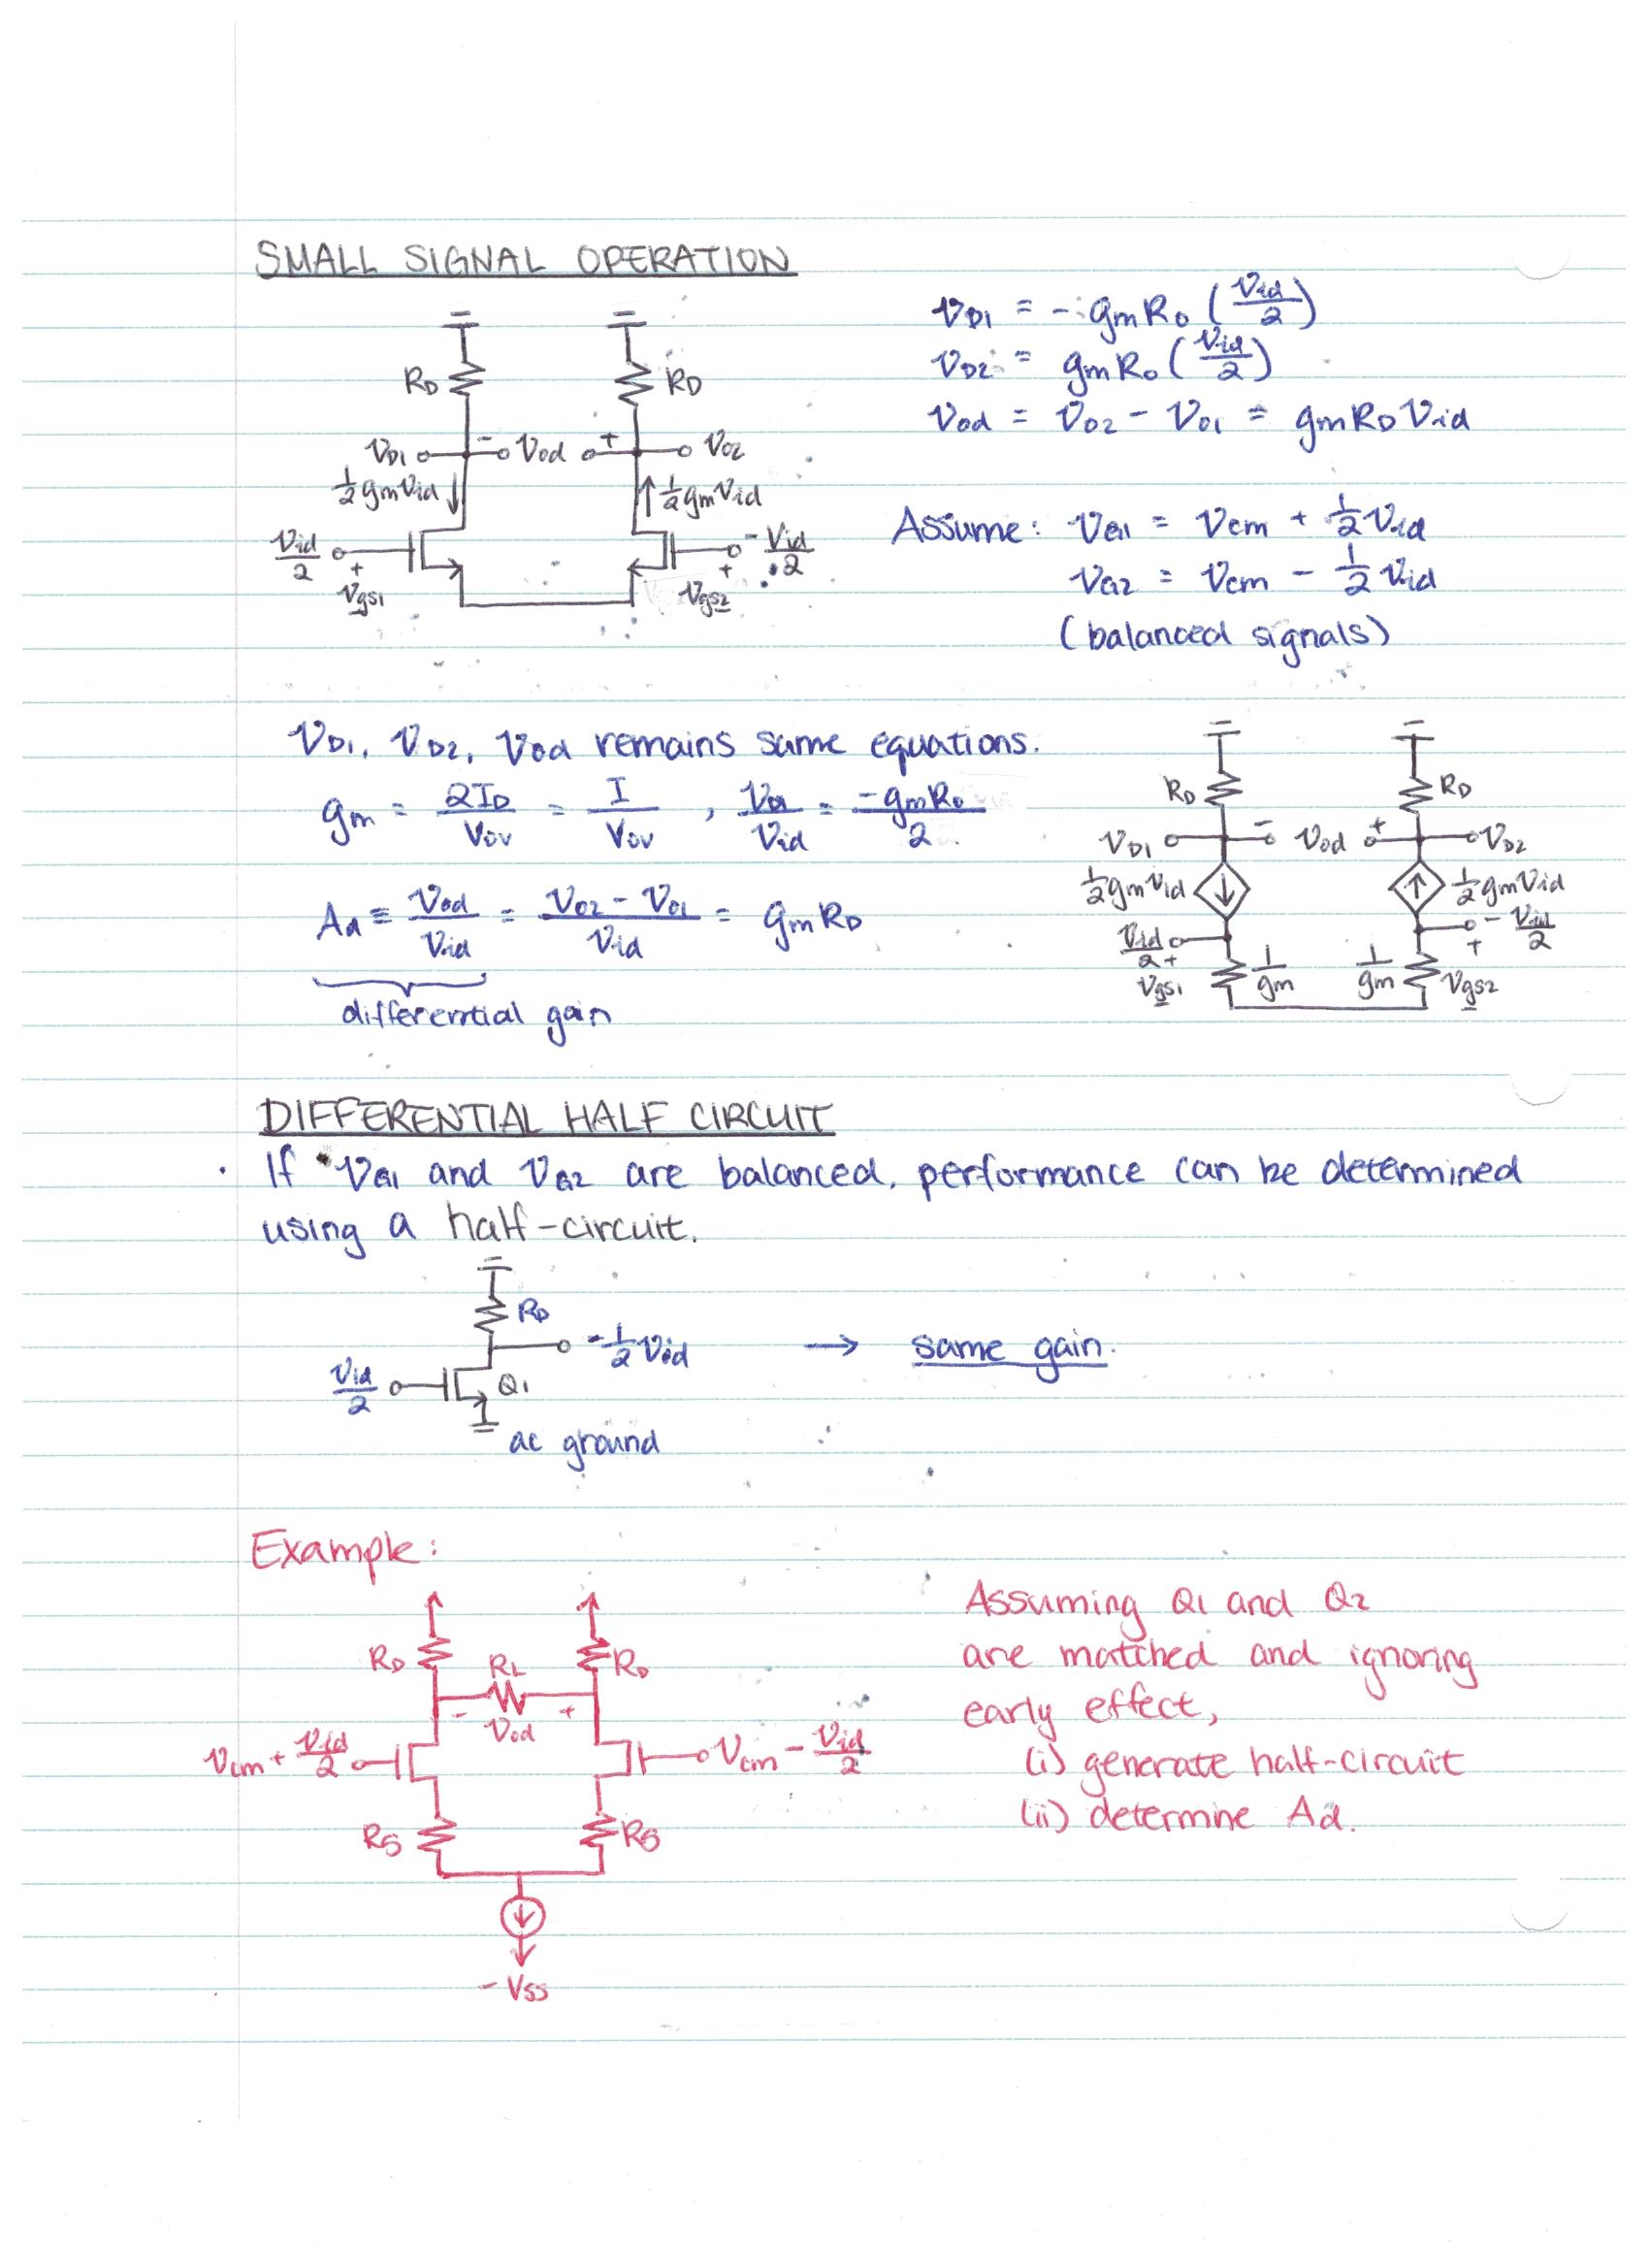 SMALL SIGNAL OPERATION
vD1 = - gm RD (vid/2)
vD2 = gm RD (vid/2)
vod = vO2 - vO1 = gm RD vid
RD RD
vD1 - vod + vO2
1/2 gm vid 1/2 gm vid
vid/2 + vgs1 -vid/2 + vgs2
Assume: vG1 = vcm + 1/2 vid
vG2 = vcm - 1/2 vid
(balanced signals)
vD1, vD2, vod remains same equations.
gm = 2ID/VOV = I/VOV , vO1/vid = -gm RD/2
Ad ≡ vod/vid = vO2 - vO1/vid = gm RD
differential gain
RD RD
vD1 - vod + vD2
1/2 gm vid 1/2 gm vid
vid/2 + vgs1 1/gm 1/gm - vid/2 + vgs2
DIFFERENTIAL HALF CIRCUIT
· If vG1 and vG2 are balanced, performance can be determined
using a half-circuit.
RD
-1/2 vod → same gain.
vid/2 Q1
ac ground
Example:
RD RL RD
- vod +
vcm + vid/2 vcm - vid/2
RS RS
-VSS
Assuming Q1 and Q2
are matched and ignoring
early effect,
(i) generate half-circuit
(ii) determine Ad.